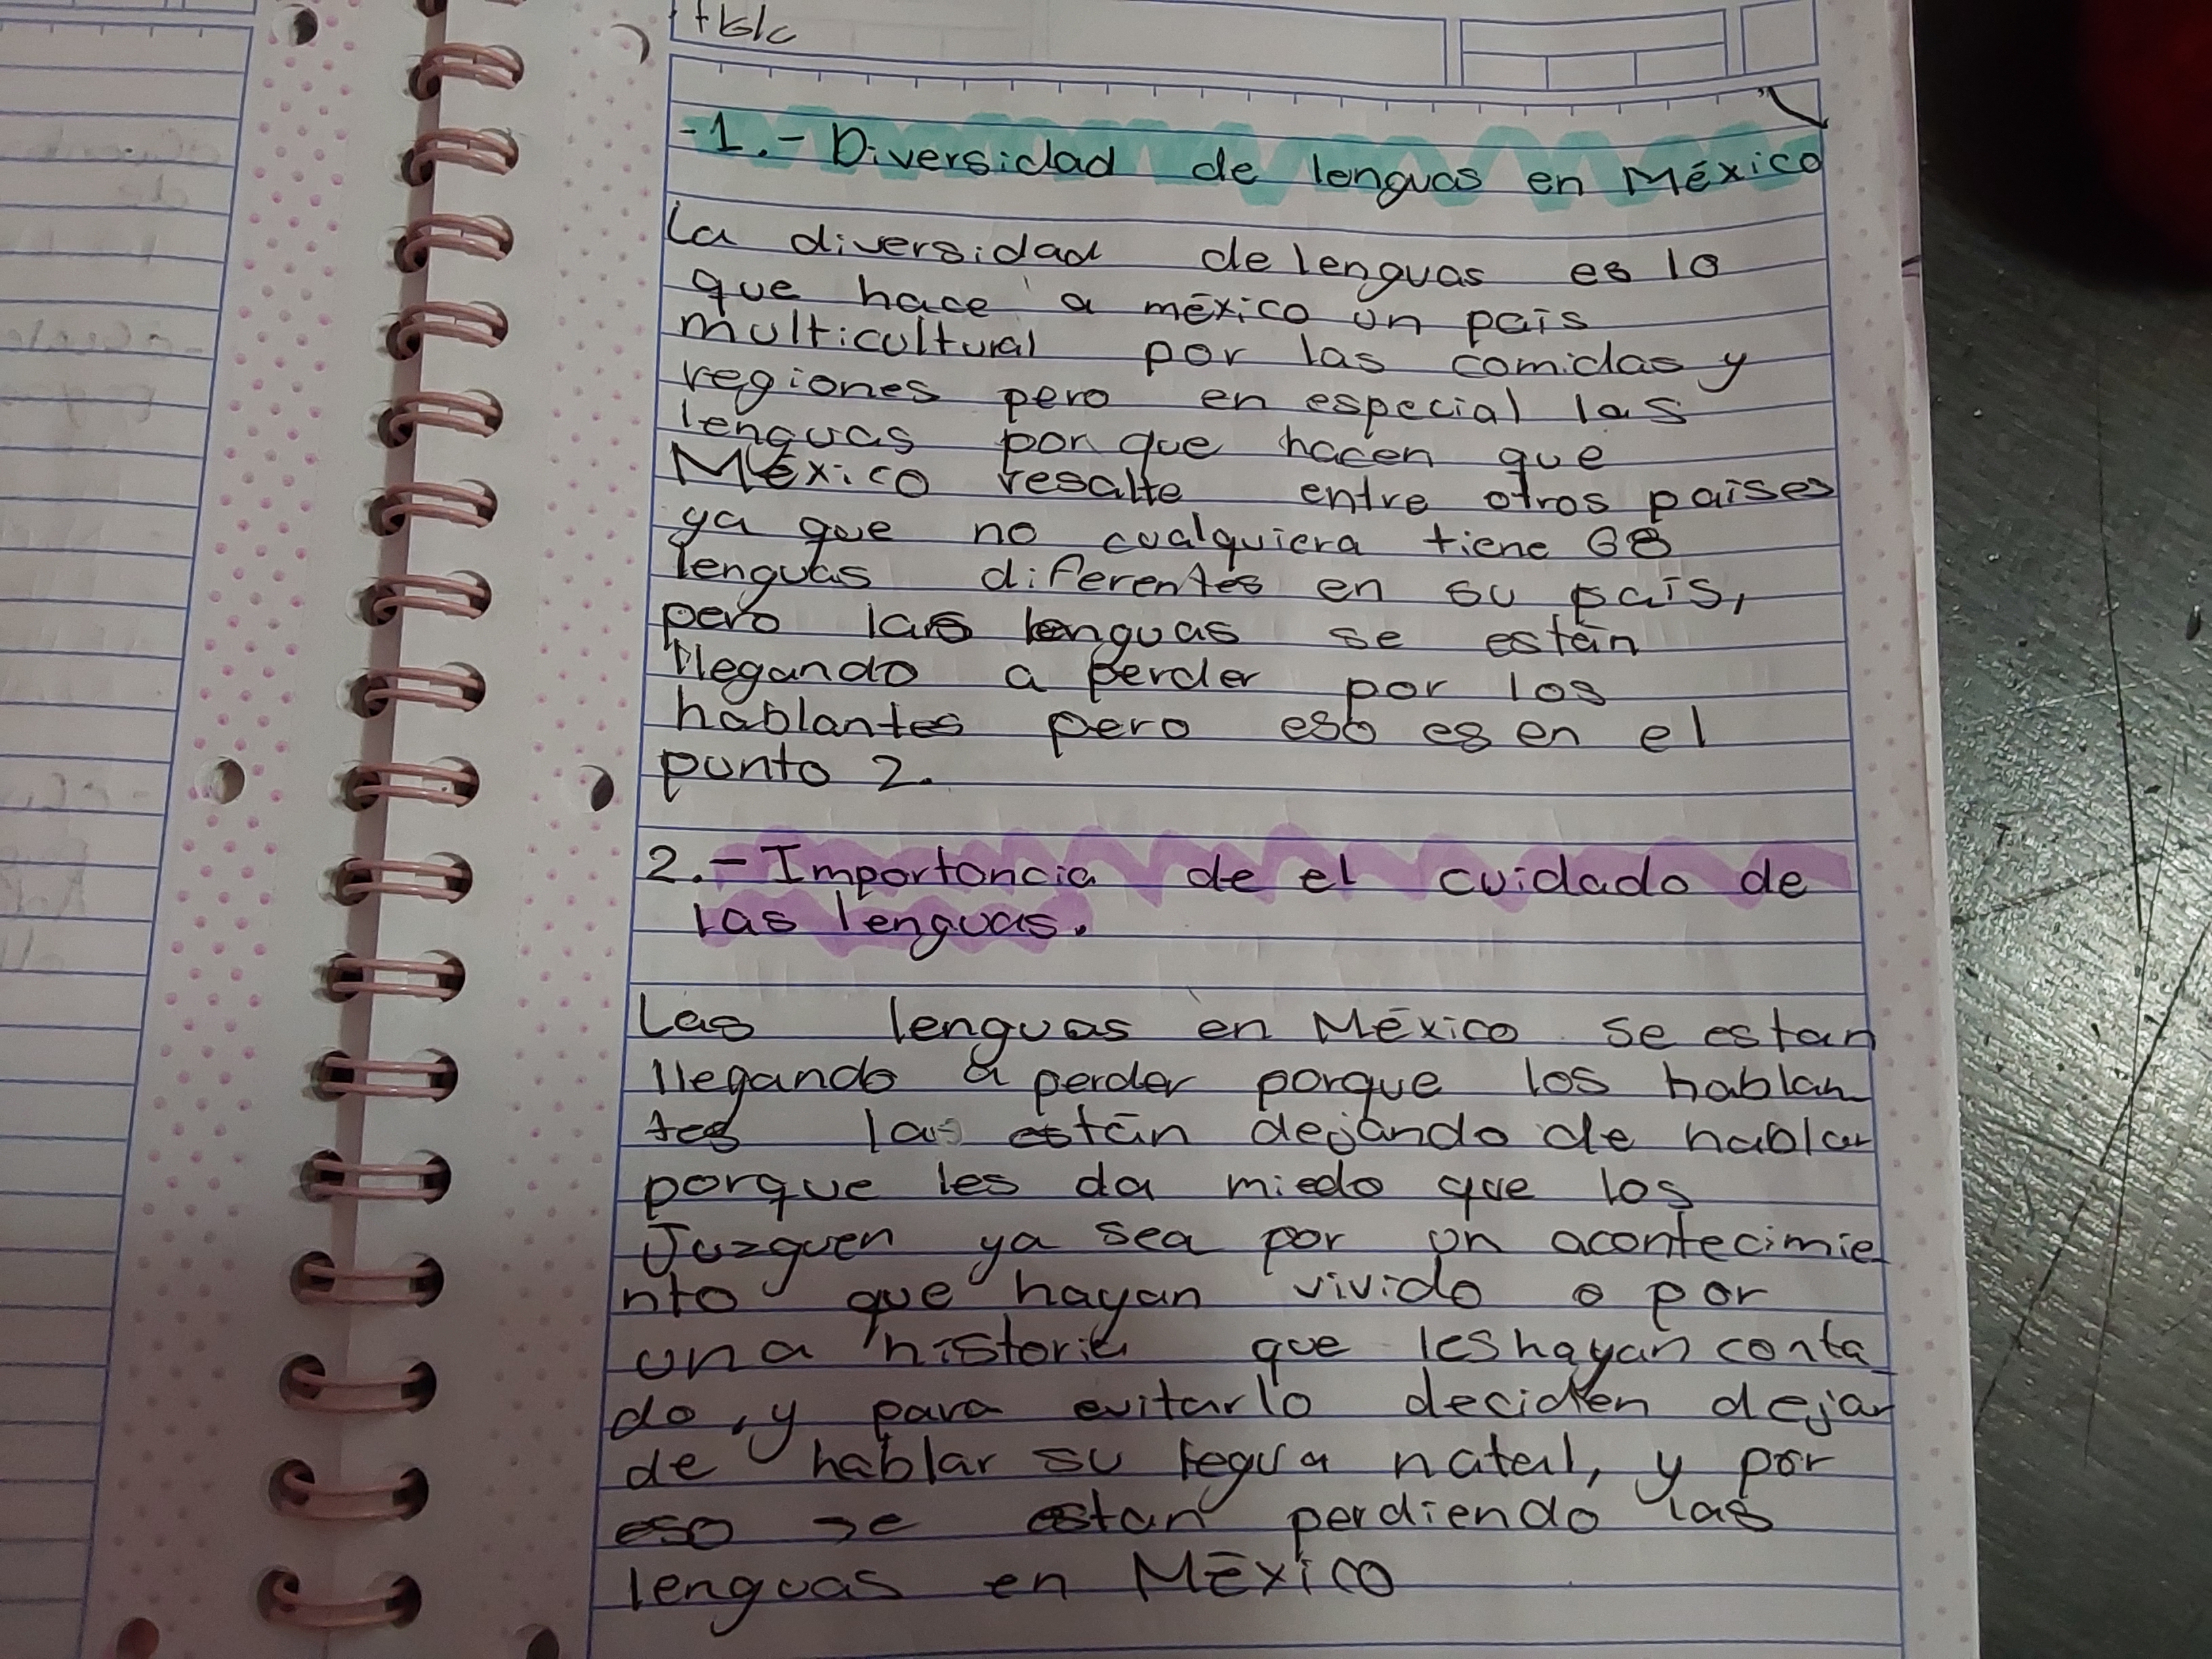 -1.- Diversidad de lenguas en México
La diversidad de lenguas es lo
que hace a méxico un país
multicultural por las comidas y
regiones pero en especial las
lenguas por que hacen que
México resalte entre otros países
ya que no cualquiera tiene 68
lenguas diferentes en su país,
pero las lenguas se están
llegando a perder por los
hablantes pero eso es en el
punto 2.
2.- Importancia de el cuidado de
las lenguas.
Las lenguas en México se estan
llegando a perder porque los hablan
tes las están dejando de hablar
porque les da miedo que los
Juzguen ya sea por un acontecimie
nto que hayan vivido o por
una historia que les hayan conta
do, y para evitarlo deciden dejar
de hablar su legua natal, y por
eso se estan perdiendo las
lenguas en México